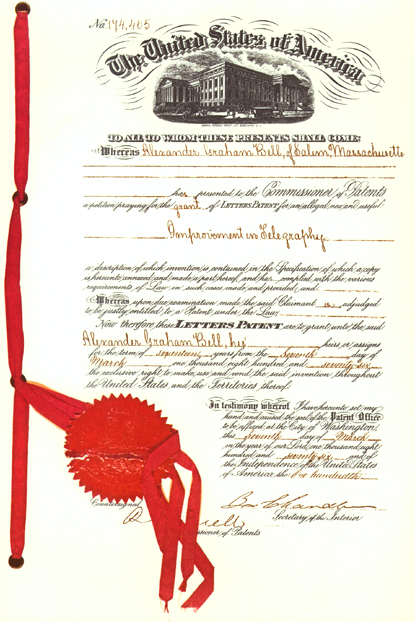 No. 174,465
The United States of America
TO ALL TO WHOM THESE PRESENTS SHALL COME:
Whereas Alexander Graham Bell, of Salem, Massachusetts
has presented to the Commissioner of Patents
a petition praying for the grant of LETTERS PATENT for an alleged new and useful
Improvement in Telegraphy,
a description of which invention is contained in the Specification of which a copy
is hereunto annexed and made a part hereof, and has complied with the various
requirements of Law in such cases made and provided, and
Whereas upon due examination made the said Claimant is adjudged
to be justly entitled to a Patent under the Law,
Now therefore these LETTERS PATENT are to grant unto the said
Alexander Graham Bell, his heirs or assigns
for the term of seventeen years from the Seventh day of
March one thousand eight hundred and seventy-six
the exclusive right to make, use and vend the said invention throughout
the United States and the Territories thereof.
In testimony whereof I have hereunto set my
hand and caused the seal of the Patent Office
to be affixed at the City of Washington
this Seventh day of March
in the year of our Lord, one thousand eight
hundred and seventy-six and of
the Independence of the United States
of America the one hundredth.
Countersigned
Secretary of the Interior
of Patents